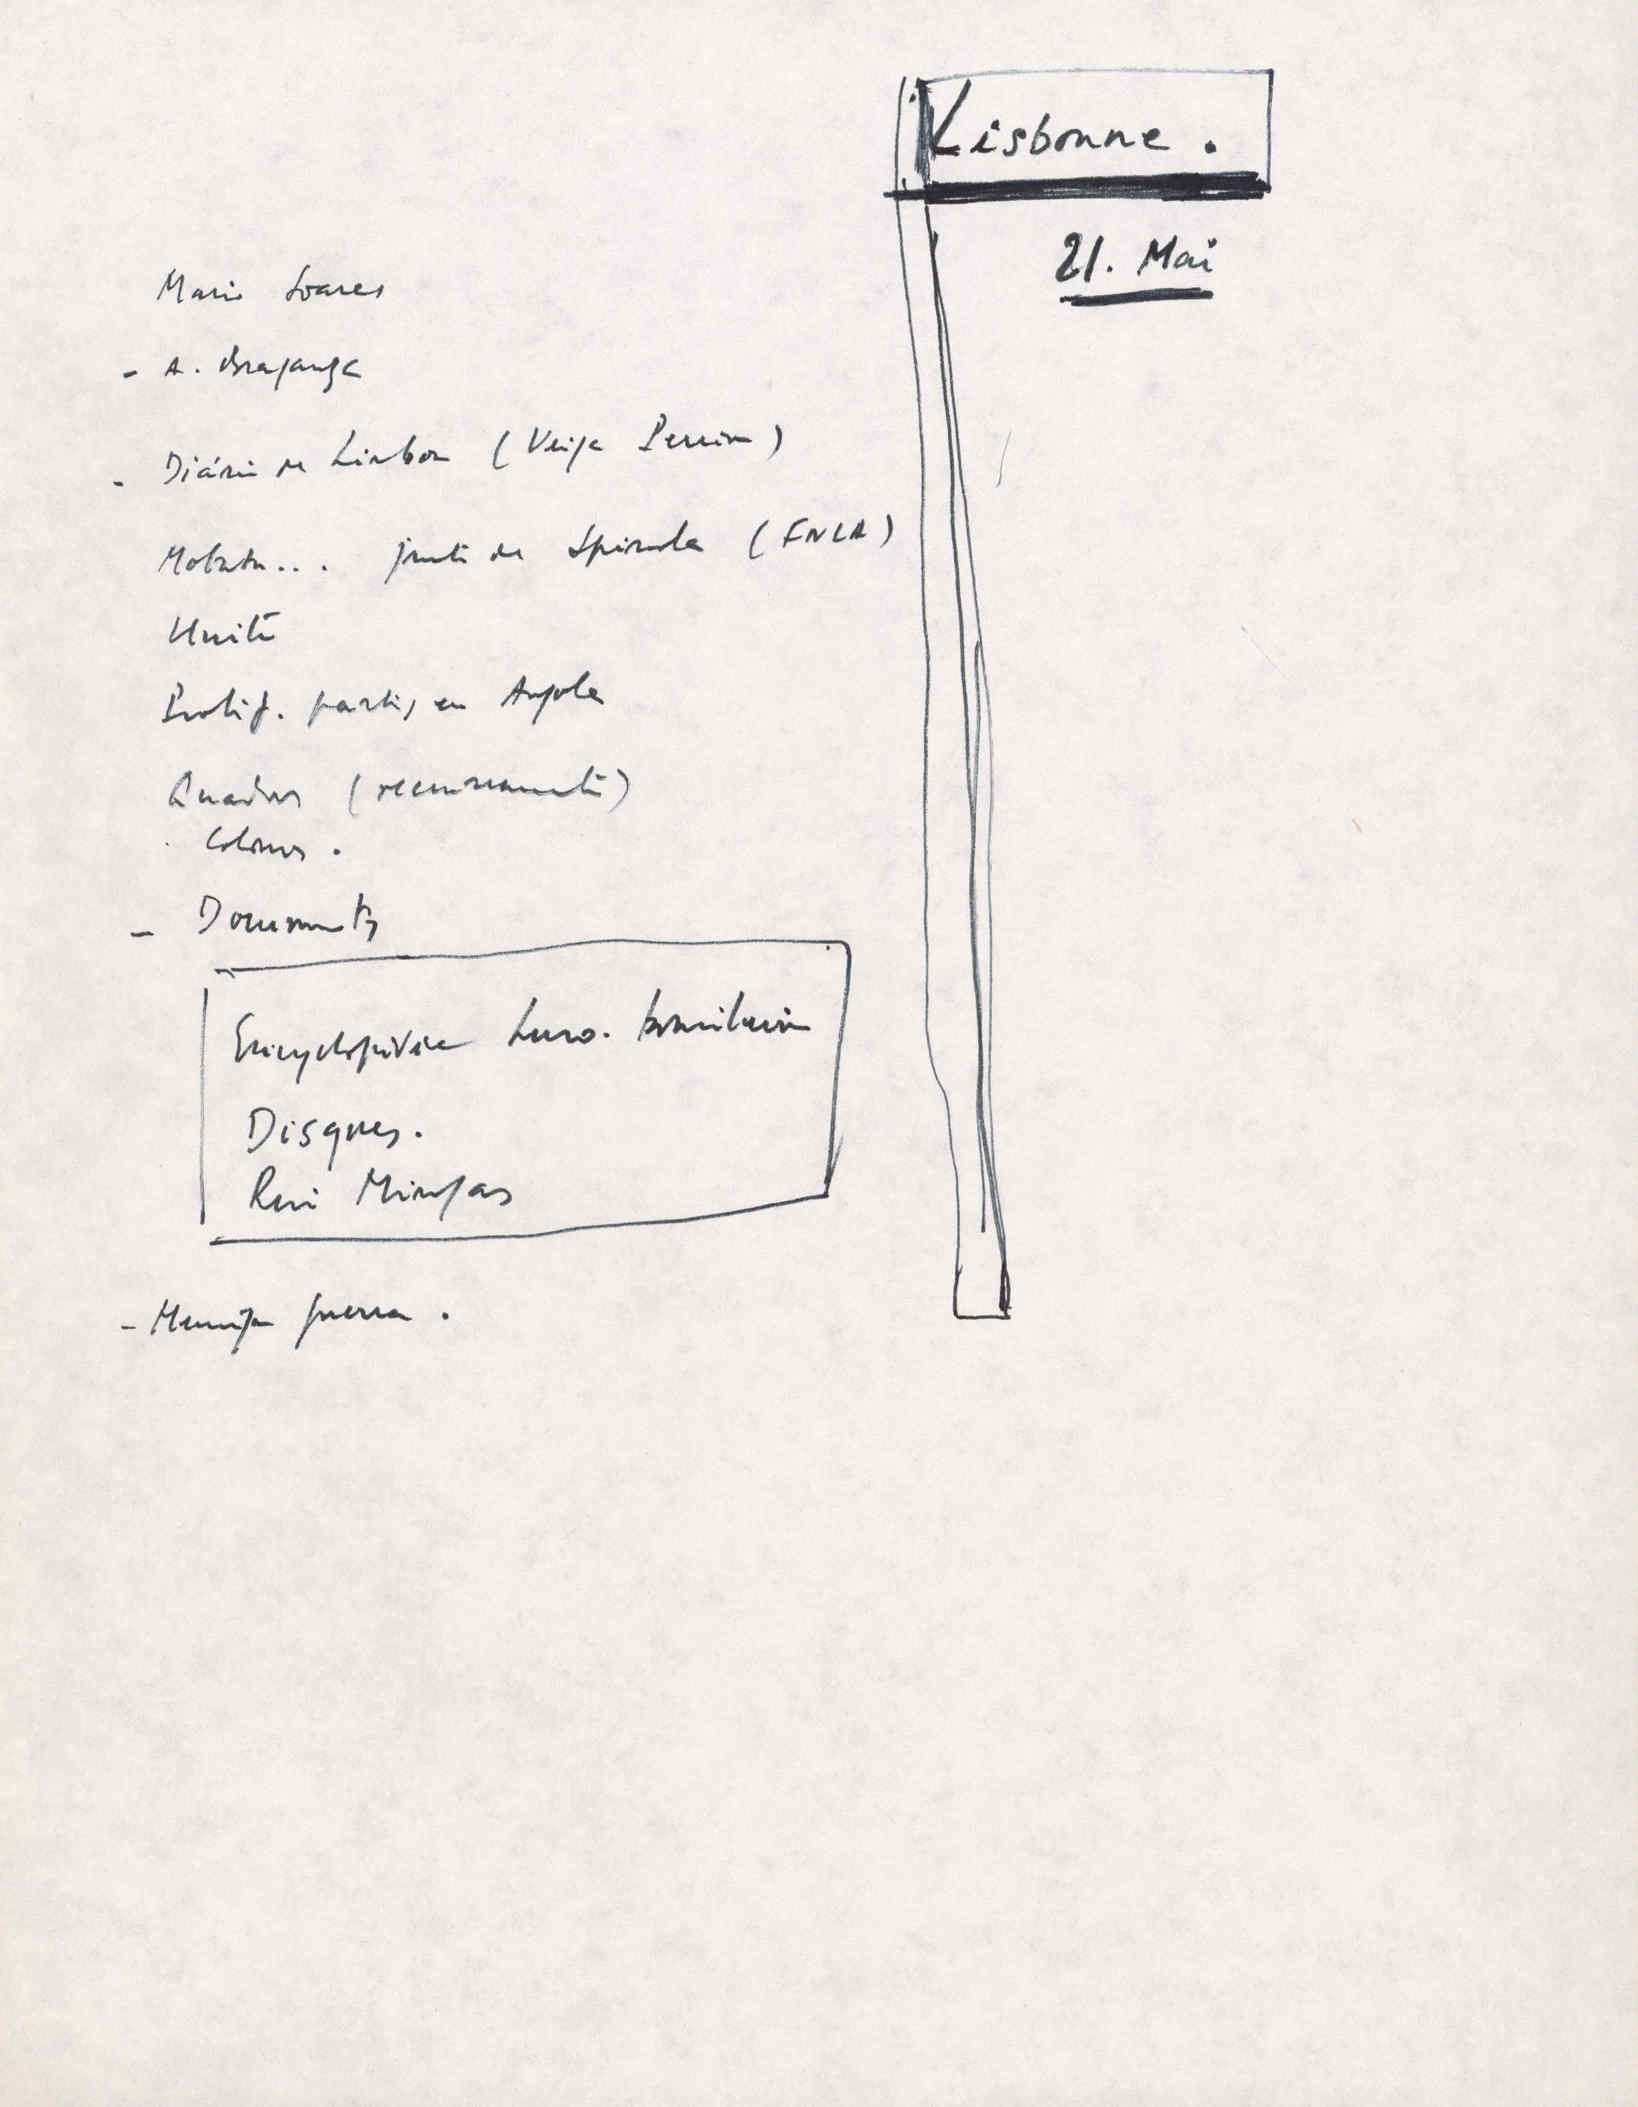 Lisbonne.
21. Mai
Mario Soares
- A. Bragança
- Diário de Lisboa (Veiga Pereira)
Mobutu... junto de Spinola (FNLA)
Unità
Prolif. partis en Angola
Quadros (recenseamento)
Colonos.
- Documents
Encyclopédia Luso. brasileira
Disques.
Rui Mingas
- guerra.